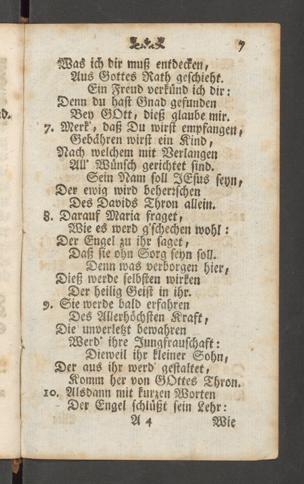 7
Was ich dir muß entdecken,
Aus Gottes Rath geschieht.
Ein Freud verkünd ich dir:
Denn du hast Gnad gefunden
Bey GOtt, dieß glaube mir.
7. Merk', daß Du wirst empfangen,
Gebähren wirst ein Kind,
Nach welchem mit Verlangen
All' Wünsch gerichtet sind.
Sein Nam soll JEsus seyn,
Der ewig wird beherrschen
Des Davids Thron allein.
8. Darauf Maria fraget,
Wie es werd g'schechen wohl:
Der Engel zu ihr saget,
Daß sie ohn Sorg seyn soll.
Denn was verborgen hier,
Dieß werde selbsten wirken
Der heilig Geist in ihr.
9. Sie werde bald erfahren
Des Allerhöchsten Kraft,
Die unverletzt bewahren
Werd' ihre Jungfrauschaft:
Dieweil ihr kleiner Sohn,
Der aus ihr werd' gestaltet,
Komm her von GOttes Thron.
10. Alsdann mit kurzen Worten
Der Engel schlüßt sein Lehr:
A 4 Wie